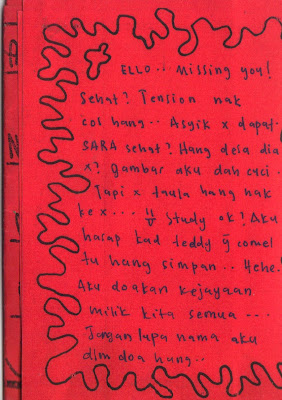 ELLO.. Missing you!
Sehat? Tension nak
col hang.. Asyik x dapat.
SARA sehat? Hang desa dia
x? Gambar aku dah cuci.
Tapi x taula hang nak
ke x... Study ok? Aku
harap kad teddy yg comel
tu hang simpan.. Hehe.
Aku doakan kejayaan
milik kita semua...
Jangan lupa nama aku
dlm doa hang..